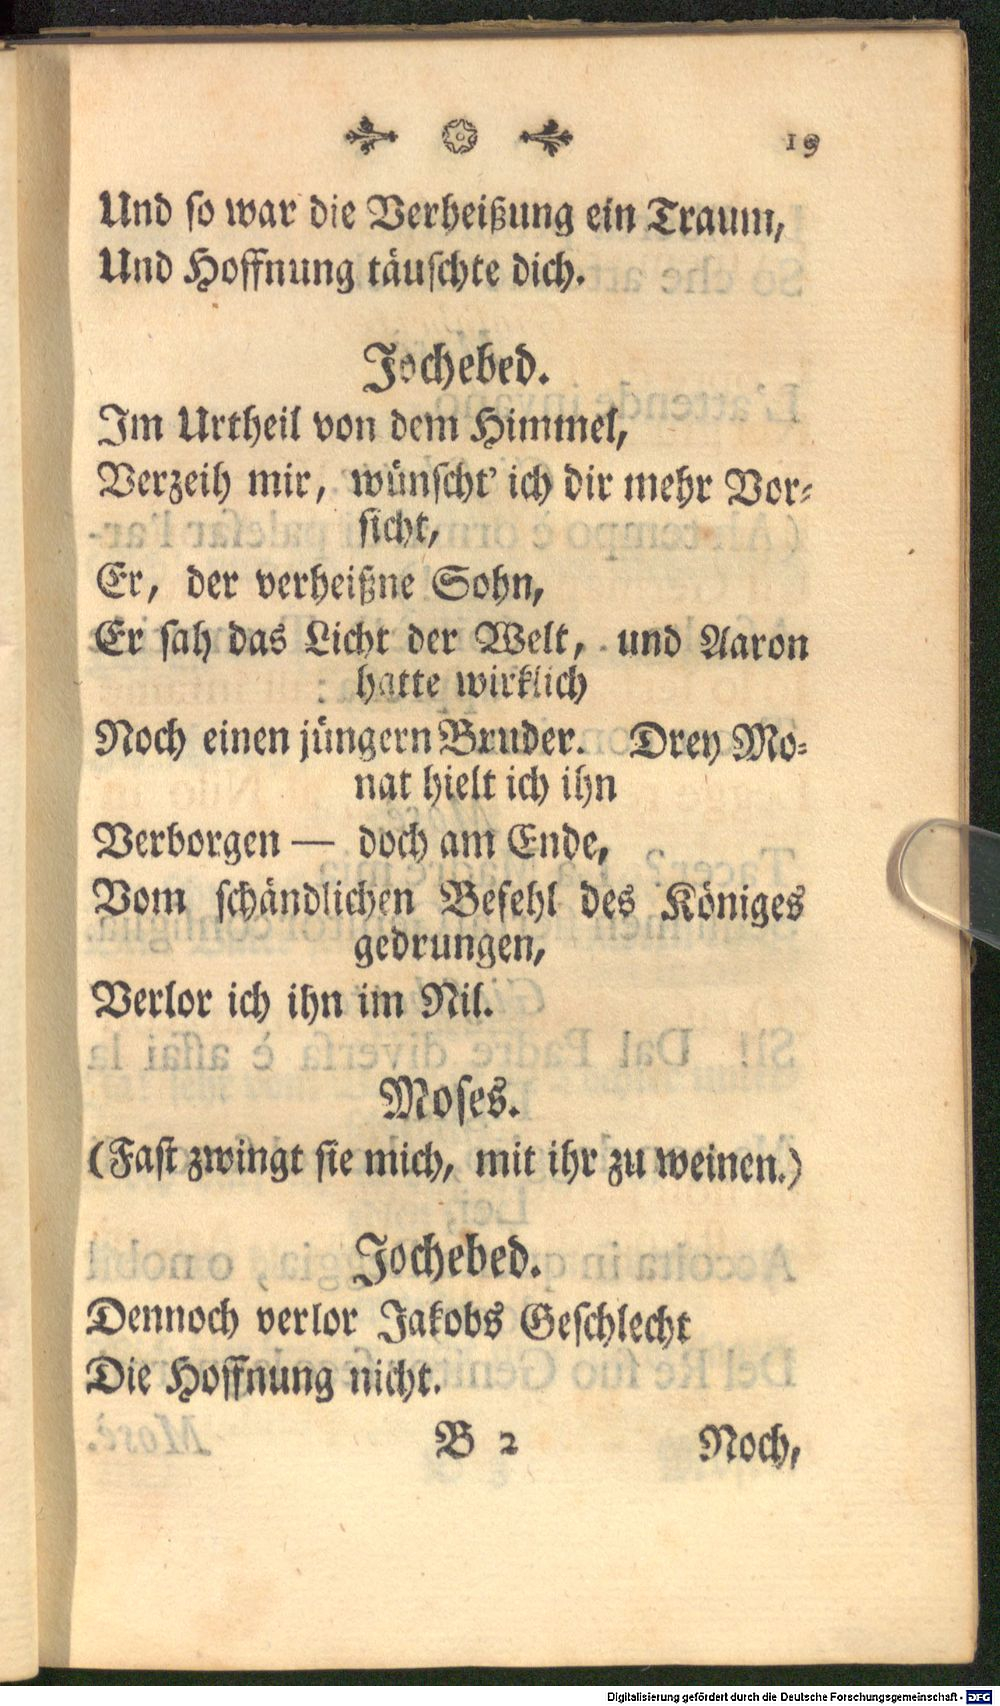 19
Und so war die Verheißung ein Traum,
Und Hoffnung täuschte dich.
Jochebed.
Im Urtheil von dem Himmel,
Verzeih mir, wünscht' ich dir mehr Vor-
sicht,
Er, der verheißne Sohn,
Er sah das Licht der Welt, und Aaron
hatte wirklich
Noch einen jüngern Bruder. Drey Mo-
nat hielt ich ihn
Verborgen — doch am Ende,
Vom schändlichen Befehl des Königes
gedrungen,
Verlor ich ihn im Nil.
Moses.
(Fast zwingt sie mich, mit ihr zu weinen.)
Jochebed.
Dennoch verlor Jakobs Geschlecht
Die Hoffnung nicht.
B 2 Noch,
Digitalisierung gefördert durch die Deutsche Forschungsgemeinschaft - DFG